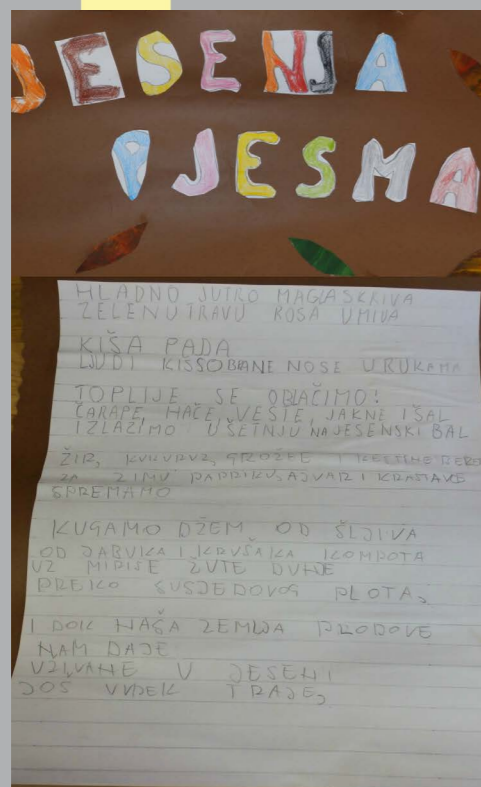 JESENJA
PJESMA
HLADNO JUTRO MAGLA SKRIVA
ZELENU TRAVU ROSA UMIVA
KIŠA PADA
LJUDI KIŠSOBRANE NOSE U RUKAMA
TOPLIJE SE OBLAČIMO!
ČARAPE, HAČE, VESTE, JAKNE I ŠAL
IZLAZIMO U ŠETNJU NA JESENSKI BAL
ŽIR, KUKURUZ, GROŽĐE I KESTENE BERO
ZA ZIMU PAPRIKU, AJVAR I KRASTAVE
SPREMAMO
KUGAMO DŽEM OD ŠLJIVA
OD JABUKA I KRUŠAKA KOMPOTA
UZ MIRISE ŽUTE DUNJE
PREKO SUSJEDOVOG PLOTA,
I DOK NAŠA ZEMLJA PLODOVE
NAM DAJE
UŽIVANE U JESENI
JOŠ UVJEK TRAJE,